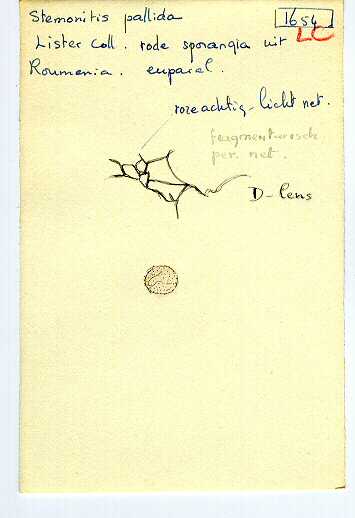 Stemonitis pallida
1654
LC
Lister Coll. rode sporangia uit
Roumania. euparal.
rozeachtig-licht net.
fragmentarisch
per. net.
D-lens